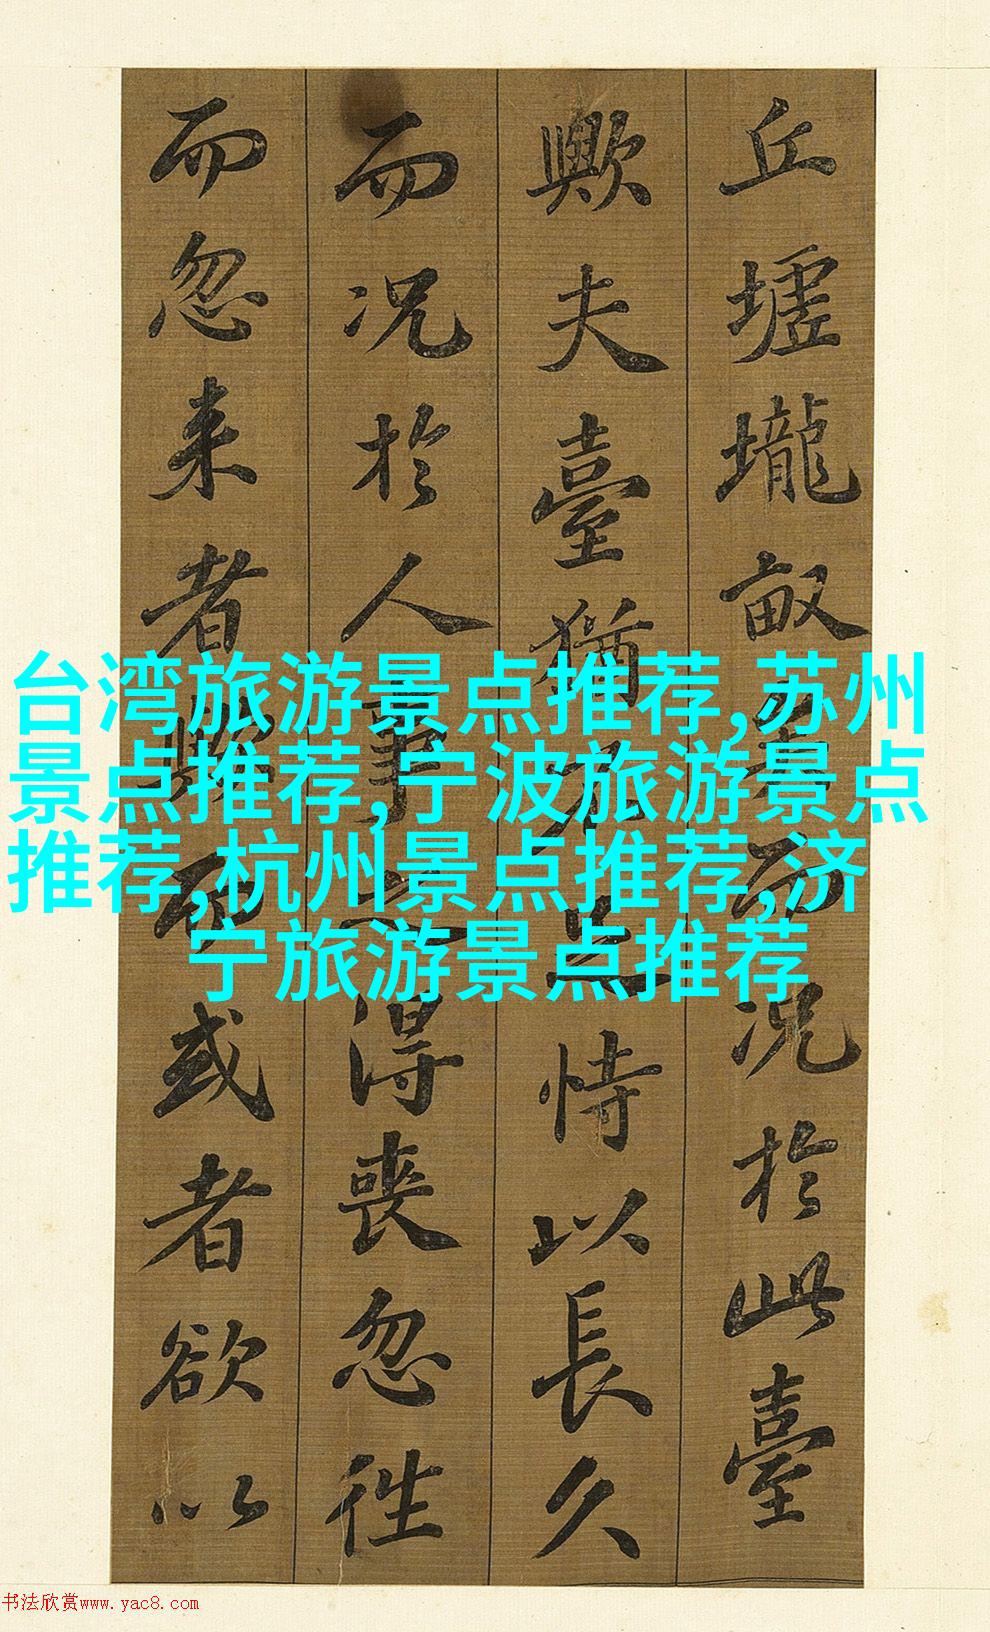 丘墟壠畝矣而况於此臺
歟夫臺猶不足恃以長久
而况於人事之得喪忽往
而忽来者歟而或者欲以
台湾旅游景点推荐,苏州
景点推荐,宁波旅游景点
推荐,杭州景点推荐,济
宁旅游景点推荐
书法欣赏www.yac8.com